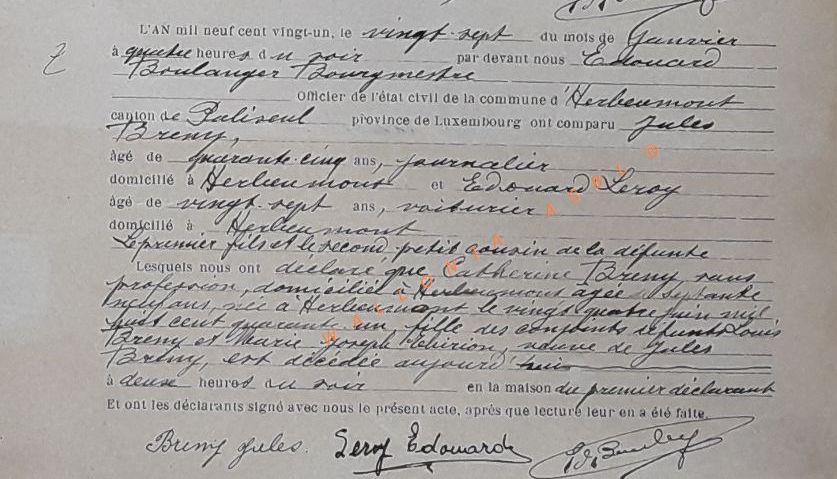 L'AN mil neuf cent vingt-un, le vingt-sept du mois de Janvier
à quatre heures du soir par devant nous Edouard
Boulanger Bourgmestre
Officier de l'état civil de la commune d'Herbeumont
canton de Paliseul province de Luxembourg ont comparu Jules
Breny,
âgé de quarante-cinq ans, journalier
domicilié à Herbeumont et Edouard Leroy
âgé de vingt-sept ans, voiturier
domicilié à Herbeumont
Le premier fils et le second petit cousin de la défunte
Lesquels nous ont déclaré que Catherine Breny, sans
profession, domiciliée à Herbeumont âgée septante
neuf ans, née à Herbeumont le vingt quatre juin mil
huit cent quarante un, fille des conjoints défunts Louis
Breny et Marie Joseph, veuve de Jules
Breny, est décédée aujourd'hui
à deux heures du soir en la maison du premier déclarant
Et ont les déclarants signé avec nous le présent acte, après que lecture leur en a été faite.
Breny Jules. Leroy Edouard
WALLONIA ASBL ©